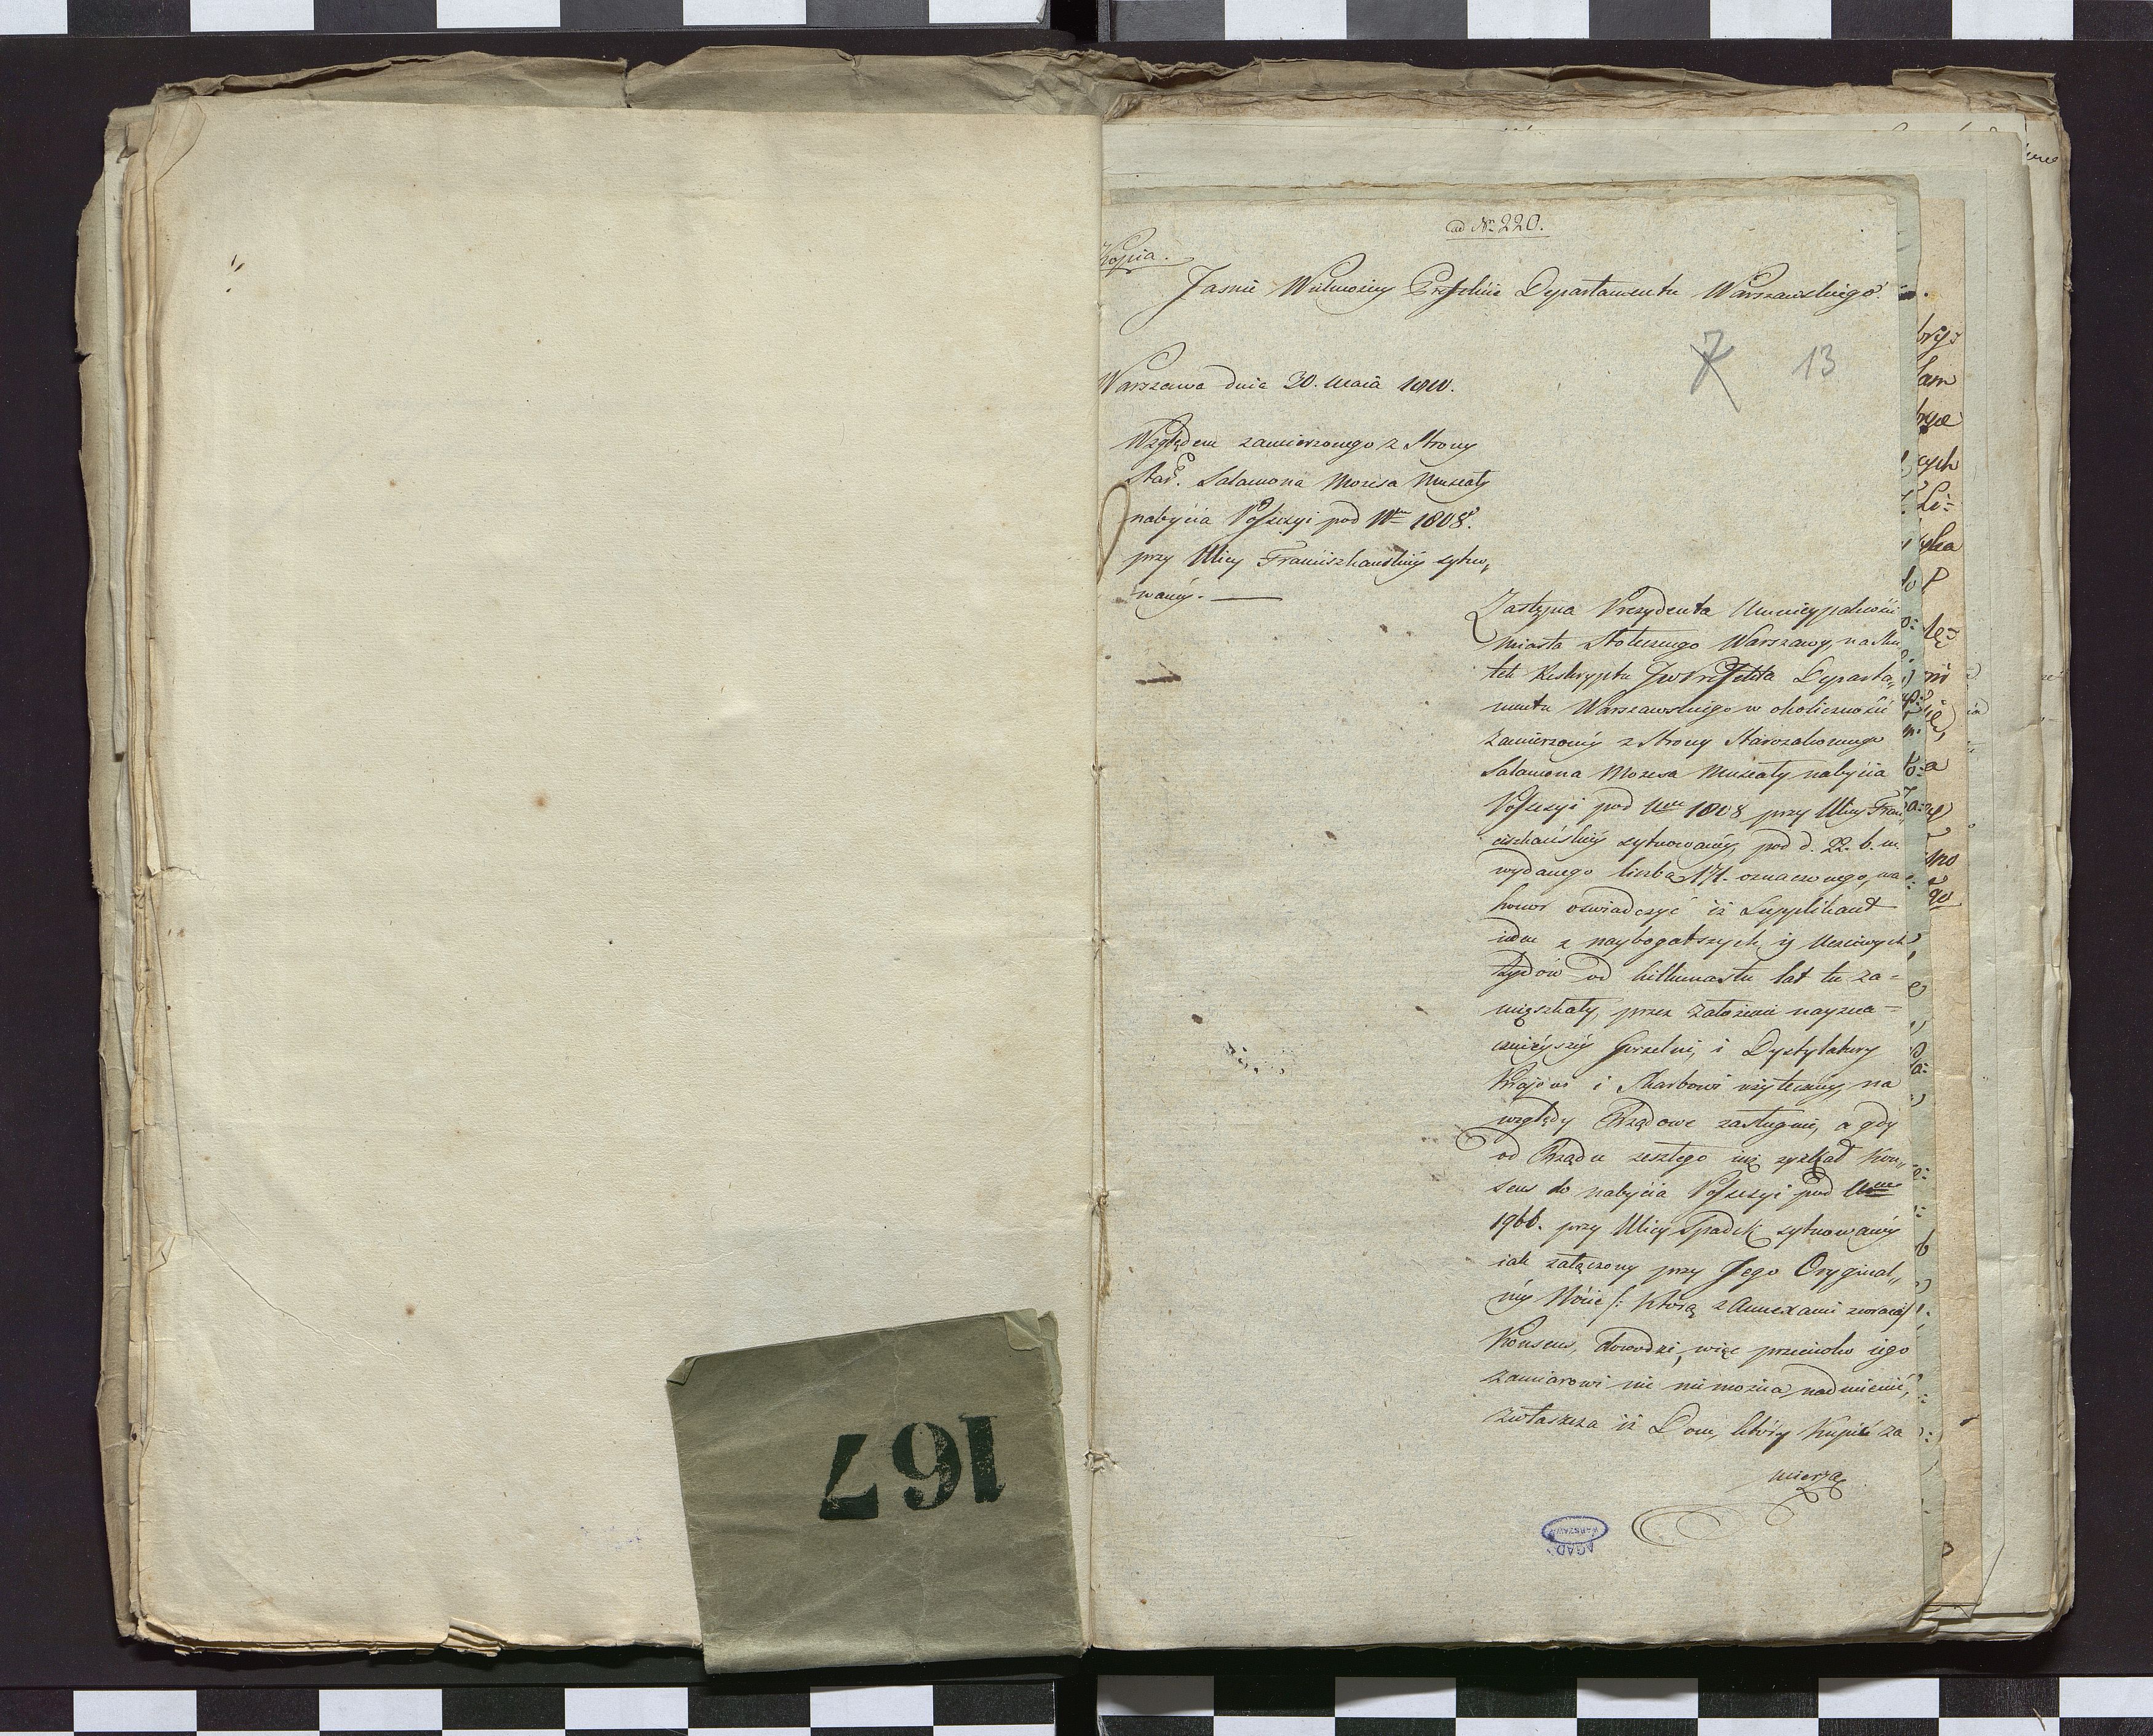 ad Nr 220.
Kopia.
Jaśnie Wielmożny Prefekcie Departamentu Warszawskiego.
7 13
Warszawa dnia 30. Maia 1810.
Względem zamierzonego z Strony
Star. Salamona Mozesa Muszaty
nabycia Possessyi pod Nrem 1808.
przy Ulicy Franciszkańskiey sytuo„
waney.
Zastępca Prezydenta Municypalności
Miasta Stołecznego Warszawy, na sku
tek Reskryptu JW Prefekta Departa„
mentu Warszawskiego w okoliczności
zamierzoney z Strony Starozakonnego
Salamona Mozesa Muszaty nabycia
Possessyi pod Nrem 1808 przy Ulicy Fran„
ciszkańskiey sytuowaney, pod d. 22. b. m.
wydanego liczbą 171. oznaczonego, ma
honor oświadczyć iż Supplikant
ieden z naybogatszych y Uczciwych
Żydów od kilkunastu lat tu za=
mięszkały, przez założenie nayzna=
cznieyszey Gorzelni, i Dystylatury
Kraiowi i Skarbowi użyteczney, na
względy Rządowe zasługuie, a gdy
od Rządu zeszłego iuż zyskał Kon„
sens do nabycia Possessyi pod Nrem
1966. przy Ulicy Spadek sytuowaney
iak załączony przy Jego Oryginal„
ney Nócie /: którą z Annexami zwraca /
Konsens, dowodzi, więc przeciwko iego
zamiarowi nic nie można nadmienić,
zwłaszcza iż Dom, który kupić za
mierza
AGAD
WARSZAWA
167